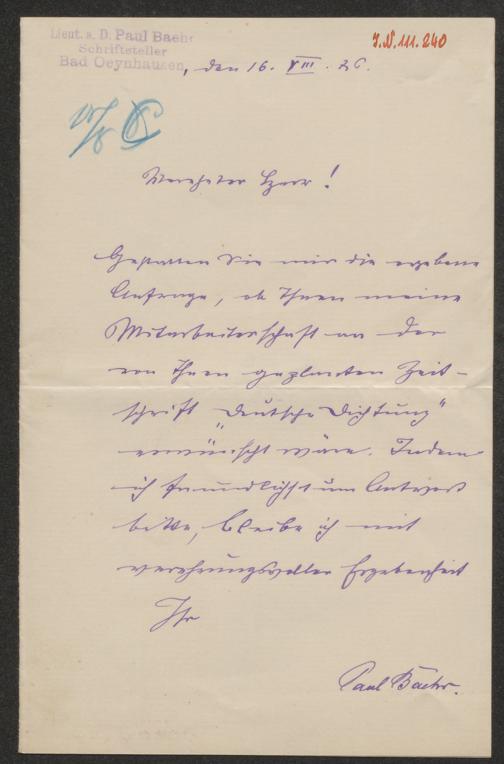 Lieut. a. D. Paul Baehr
Schriftsteller
Bad Oeynhausen
J.N. 111.240
, den 16. VIII. 86.
Verehrter Herr!
Gestatten Sie mir die ergebene
Anfrage, ob Ihnen meine
Mitarbeiterschaft an der
von Ihnen geplanten Zeit-
schrift „Deutsche Dichtung“
erwünscht wäre. Indem
ich freundlichst um Antwort
bitte, bleibe ich mit
verehrungsvoller Ergebenheit
Ihr
Paul Baehr.